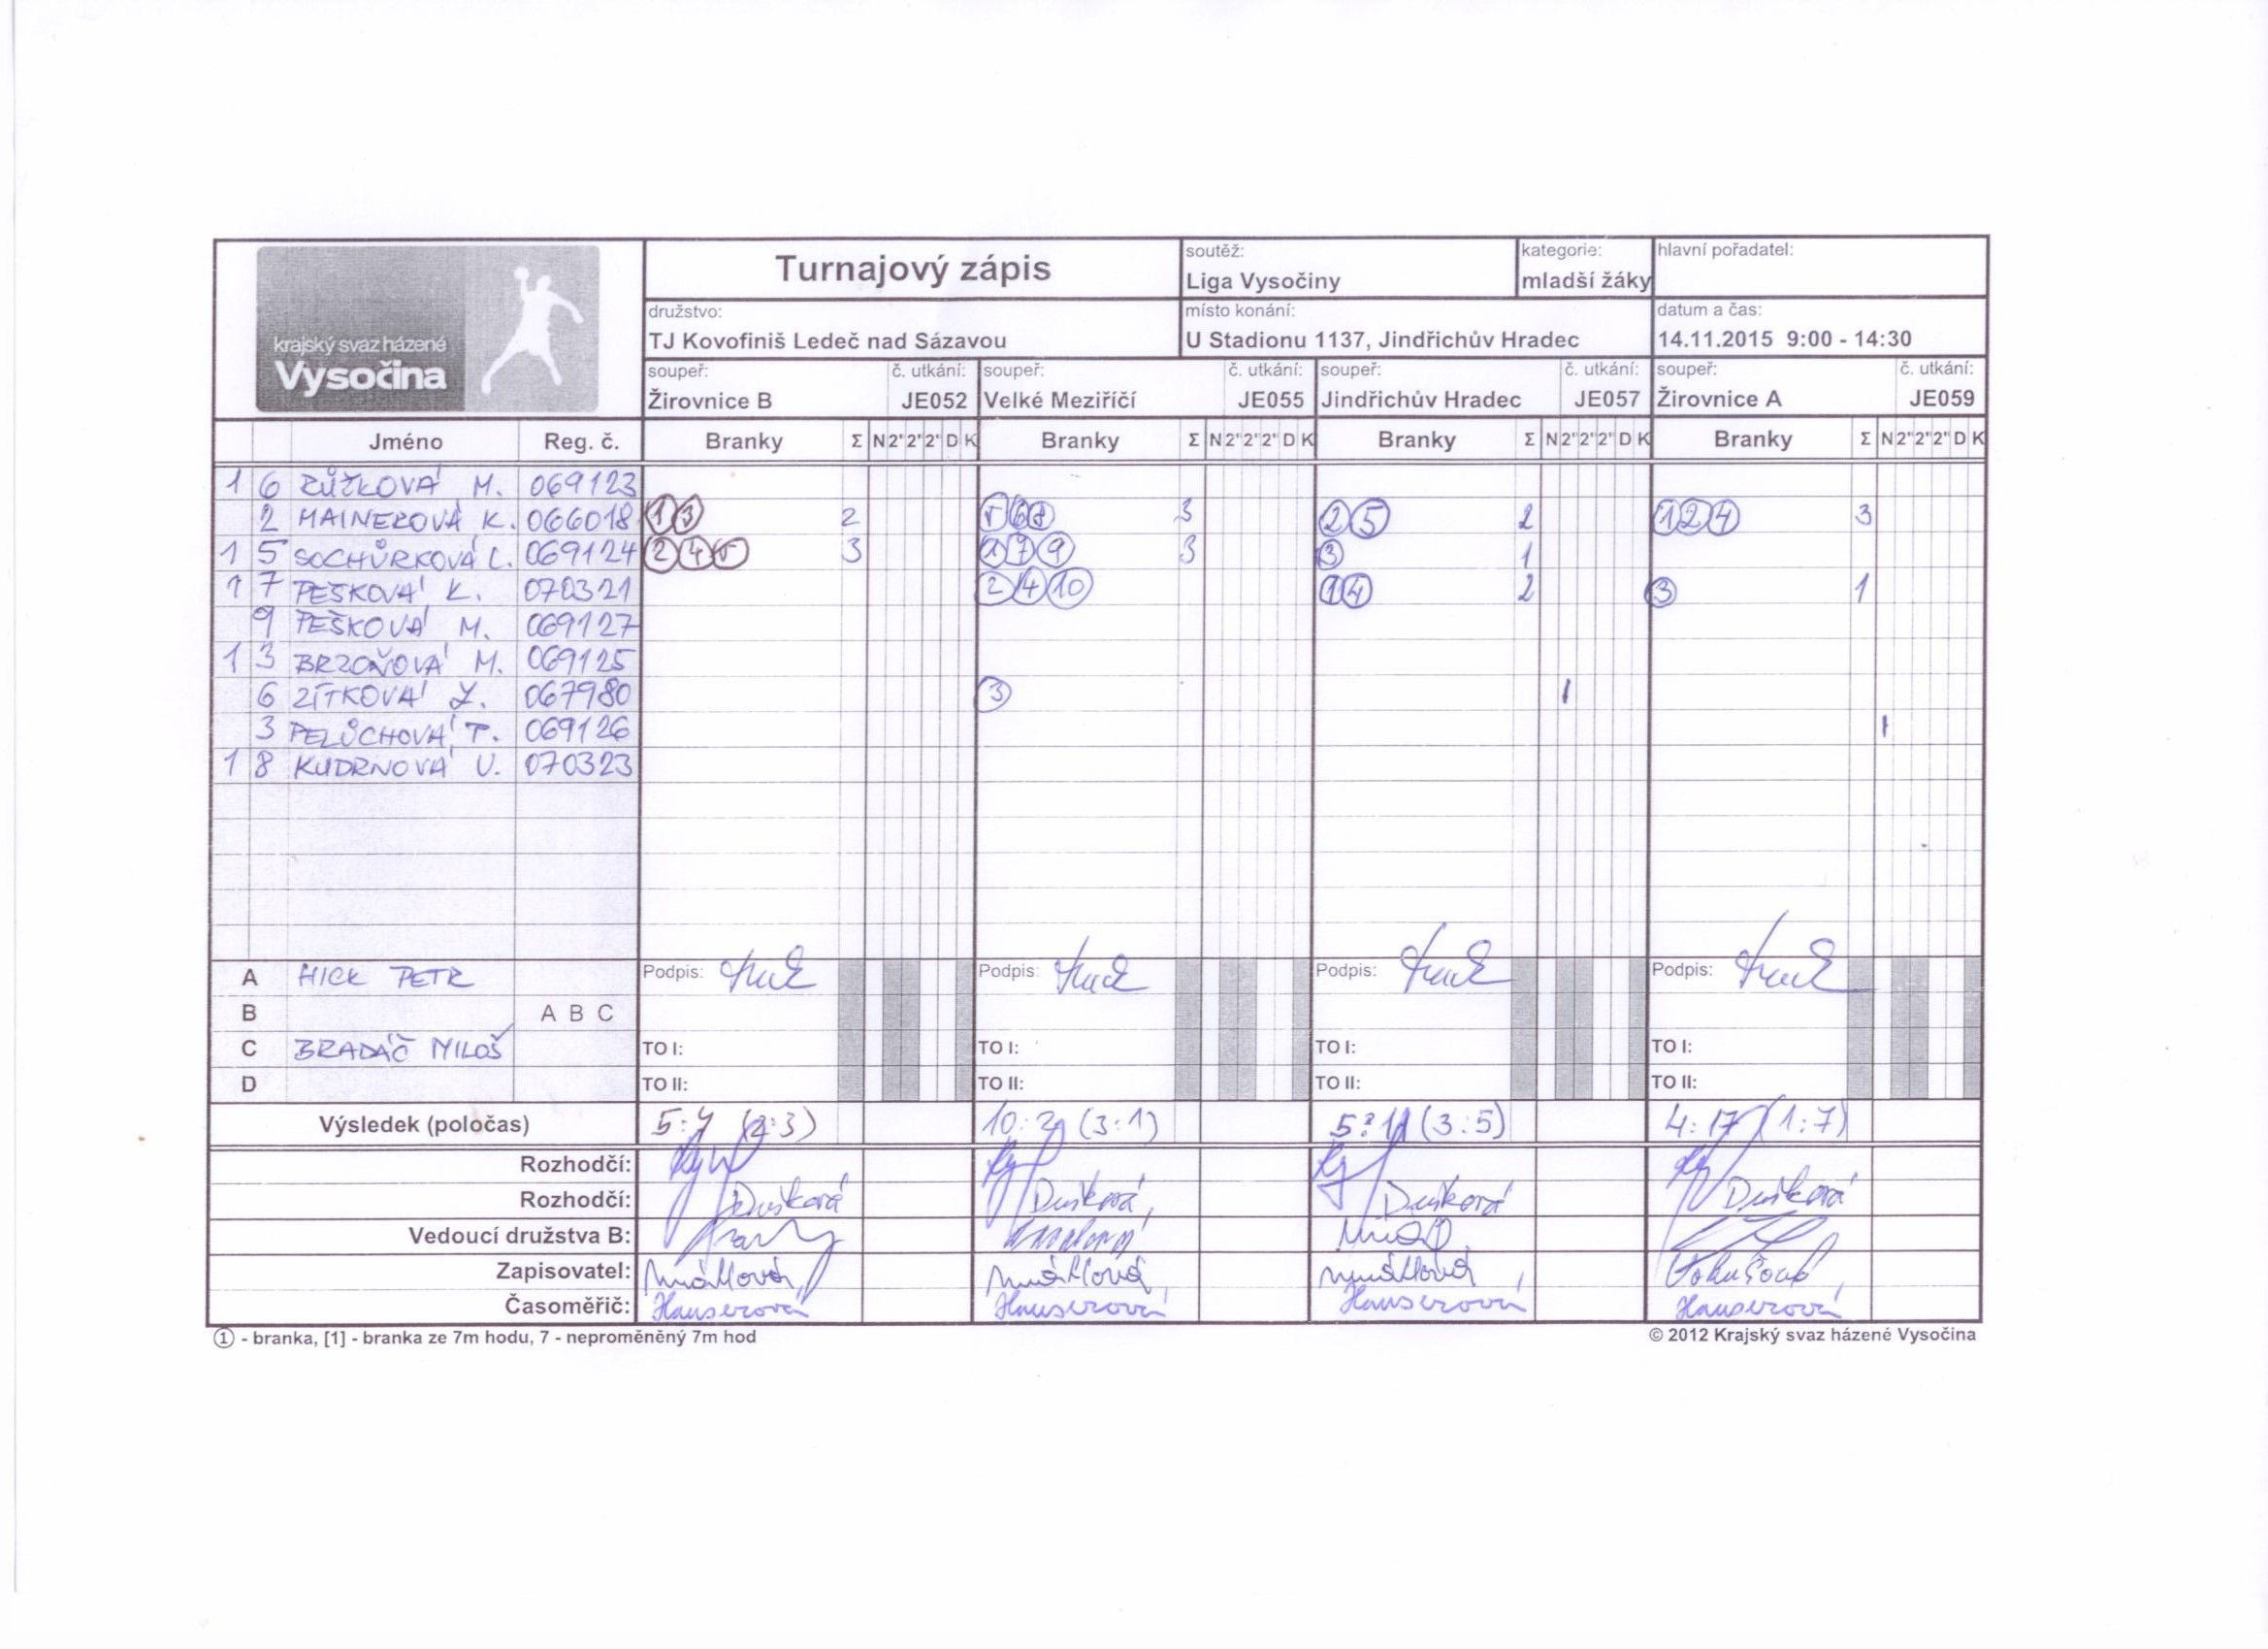 krajský svaz házené
Vysočina
Turnajový zápis
soutěž:
Liga Vysočiny
kategorie:
mladší žáky
hlavní pořadatel:
družstvo:
TJ Kovofiniš Ledeč nad Sázavou
místo konání:
U Stadionu 1137, Jindřichův Hradec
datum a čas:
14.11.2015 9:00 - 14:30
soupeř: č. utkání: soupeř: č. utkání: soupeř: č. utkání: soupeř: č. utkání:
Žirovnice B JE052 Velké Meziříčí JE055 Jindřichův Hradec JE057 Žirovnice A JE059
Jméno Reg. č. Branky Σ N 2' 2' 2' D K Branky Σ N 2' 2' 2' D K Branky Σ N 2' 2' 2' D K Branky Σ N 2' 2' 2' D K
16 RŮŽKOVÁ M. 069123
2 MAINEROVÁ K. 066018 1 3 2 5 6 8 3 2 5 2 1 2 4 3
15 SOCHŮRKOVÁ L. 069124 2 4 5 3 1 7 9 3 3 1
17 PEŠKOVÁ K. 070321 2 4 10 1 4 2 3 1
9 PEŠKOVÁ M. 069127
13 BRZOŇOVÁ M. 069125
6 ZÍTKOVÁ 067980 3 I
3 PELŮCHOVÁ T. 069126 I
18 KUDRNOVÁ V. 070323
A HICK PETR Podpis: Podpis: Podpis: Podpis:
B A B C
C BRADÁČ MILOŠ TO I: TO I: TO I: TO I:
D TO II: TO II: TO II: TO II:
Výsledek (poločas) (2:3) 10:2 (3:1) 5:11 (3:5) 4:17 (1:7)
Rozhodčí:
Rozhodčí: Dušková Dušková Dušková Dušková
Vedoucí družstva B:
Zapisovatel:
Časoměřič: Hauserová Hauserová Hauserová Hauserová
① - branka, [1] - branka ze 7m hodu, 7 - neproměněný 7m hod
© 2012 Krajský svaz házené Vysočina